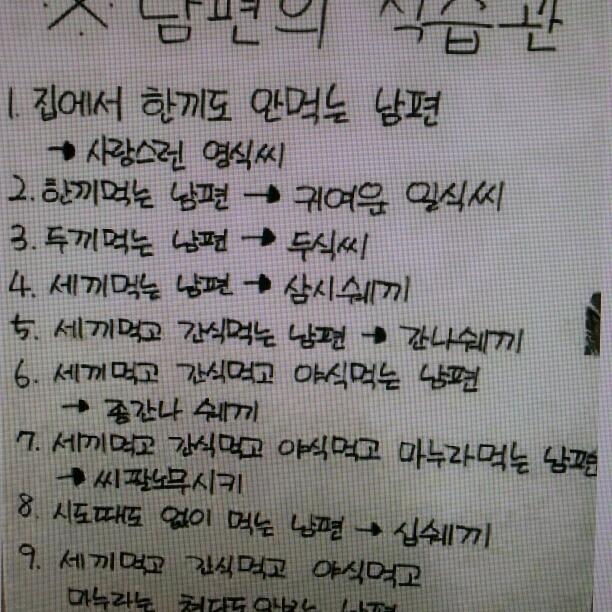 ※ 남편의 식습관
1. 집에서 한끼도 안먹는 남편
→ 사랑스런 영식씨
2. 한끼먹는 남편 → 귀여운 일식씨
3. 두끼먹는 남편 → 두식씨
4. 세끼먹는 남편 → 삼시쉐끼
5. 세끼먹고 간식먹는 남편 → 간나쉐끼
6. 세끼먹고 간식먹고 야식먹는 남편
→ 종간나 쉐끼
7. 세끼먹고 간식먹고 야식먹고 마누라먹는 남편
→ 씨팔노무시키
8. 시도때도 없이 먹는 남편 → 십쉐끼
9. 세끼먹고 간식먹고 야식먹고
마누라는 쳐다도안보는 남편